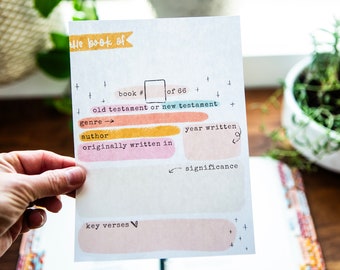 the book of
book # of 66
old testament or new testament
genre →
author
year written
originally written in
significance
key verses